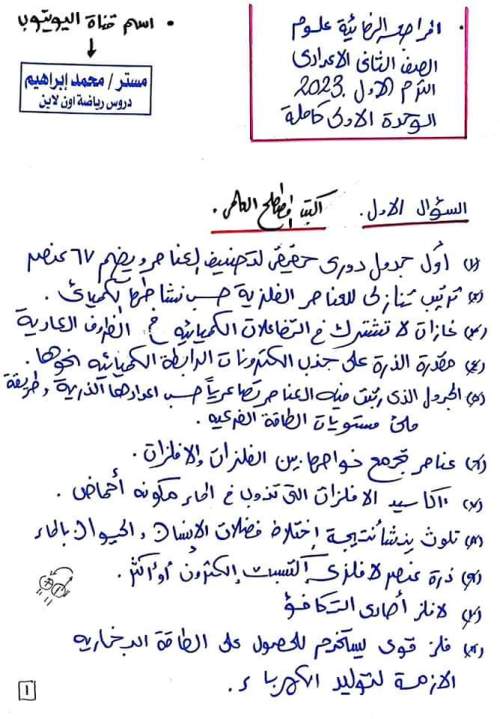 المراجعة النهائية علوم
الصف الثانى الاعدادى
الترم الاول 2023.
الوحدة الاولى كاملة
اسم قناة اليوتيوب
مستر / محمد إبراهيم
دروس رياضة اون لاين
السؤال الاول. اكتب المصطلح العلمى.
(١) أول جدول دورى حقيقى لتصنيف العناصر ويضم ٦٧ عنصر
(٢) ترتيب تنازلى للعناصر الفلزية حسب نشاطها الكيميائى.
(٣) غازات لا تشترك فى التفاعلات الكيميائيه فى الظروف العادية
(٤) مقدرة الذرة على جذب الكترونات الرابطة الكيميائيه نحوها.
(٥) الجدول الذى رتبت فيه العناصر تصاعدياً حسب اعدادها الذرية وطريقة
ملئ مستويات الطاقة الفرعيه.
(٦) عناصر تجمع خواصها بين الفلزات والافلزات.
(٧) اكاسيد الافلزات التى تذوب فى الماء مكونه أحماض.
(٨) تلوث ينشأ نتيجة إختلاط فضلات الإنسان والحيوان بالماء
(٩) ذرة عنصر لافلزى اكتسبت إلكترون أو أكثر.
(١٠) لافلز أحادى التكافؤ
(١١) فلز قوى يستخدم للحصول على الطاقة البخاريه
الازمة لتوليد الكهرباء.
١